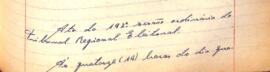 Ata da 192ª sessão ordinária do
Tribunal Regional Eleitoral.
Às quatorze (14) horas do dia qua-